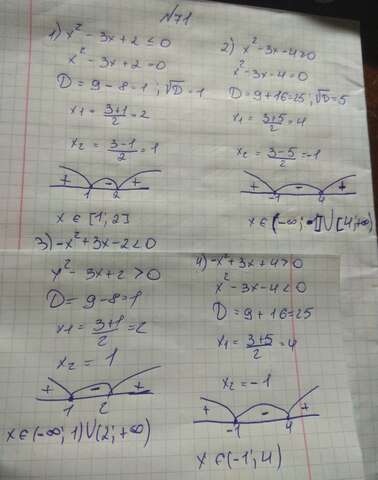 N71
1) x² - 3x + 2 ≤ 0
x² - 3x + 2 = 0
D = 9 - 8 = 1 ; √D = 1
x₁ = 3+1/2 = 2
x₂ = 3-1/2 = 1
+ - +
1 2
x ∈ [1; 2]
2) x² - 3x - 4 ≥ 0
x² - 3x - 4 = 0
D = 9 + 16 = 25 ; √D = 5
x₁ = 3+5/2 = 4
x₂ = 3-5/2 = -1
+ - +
-1 4
x ∈ (-∞; -1] ∪ [4; +∞)
3) -x² + 3x - 2 < 0
x² - 3x + 2 > 0
D = 9 - 8 = 1
x₁ = 3+1/2 = 2
x₂ = 1
+ - +
1 2
x ∈ (-∞; 1) ∪ (2; +∞)
4) -x² + 3x + 4 > 0
x² - 3x - 4 < 0
D = 9 + 16 = 25
x₁ = 3+5/2 = 4
x₂ = -1
+ - +
-1 4
x ∈ (-1; 4)